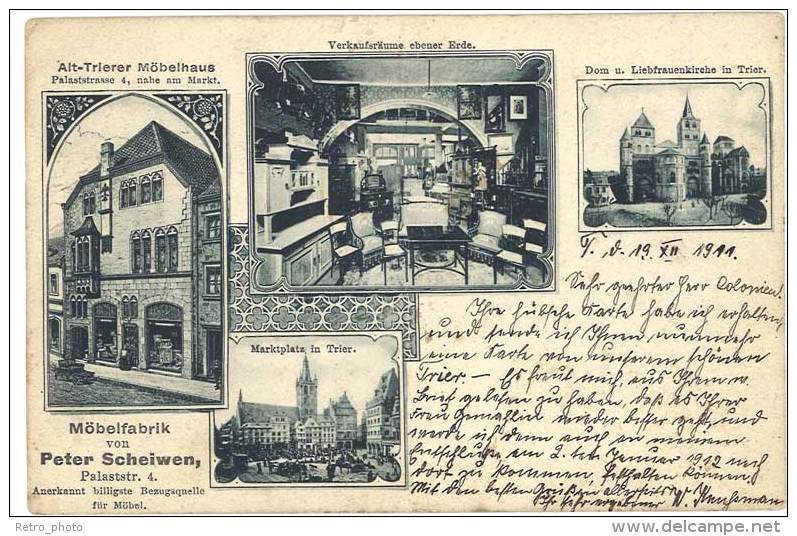 Alt-Trierer Möbelhaus
Palaststrasse 4, nahe am Markt.
Verkaufsräume ebener Erde.
Dom u. Liebfrauenkirche in Trier.
T., d. 19. XII 1911.
Sehr geehrter Herr
Ihre hübsche Karte habe ich erhalten
und sende ich Ihnen nunmehr
eine Karte von unserem schönen
Trier. – Es freut mich, aus Ihrem w.
Brief gelesen zu haben, daß es Ihrer
Frau Gemahlin wieder besser geht, und
werde ich denn auch an meinem
Entschlusse am 2. Januar 1912 nach
dort zu kommen festhalten können.
Mit den besten Grüßen allerseits
Ihr sehr ergebener W.
Marktplatz in Trier.
Möbelfabrik
von
Peter Scheiwen,
Palaststr. 4.
Anerkannt billigste Bezugsquelle
für Möbel.
Retro_photo
delcampe.net